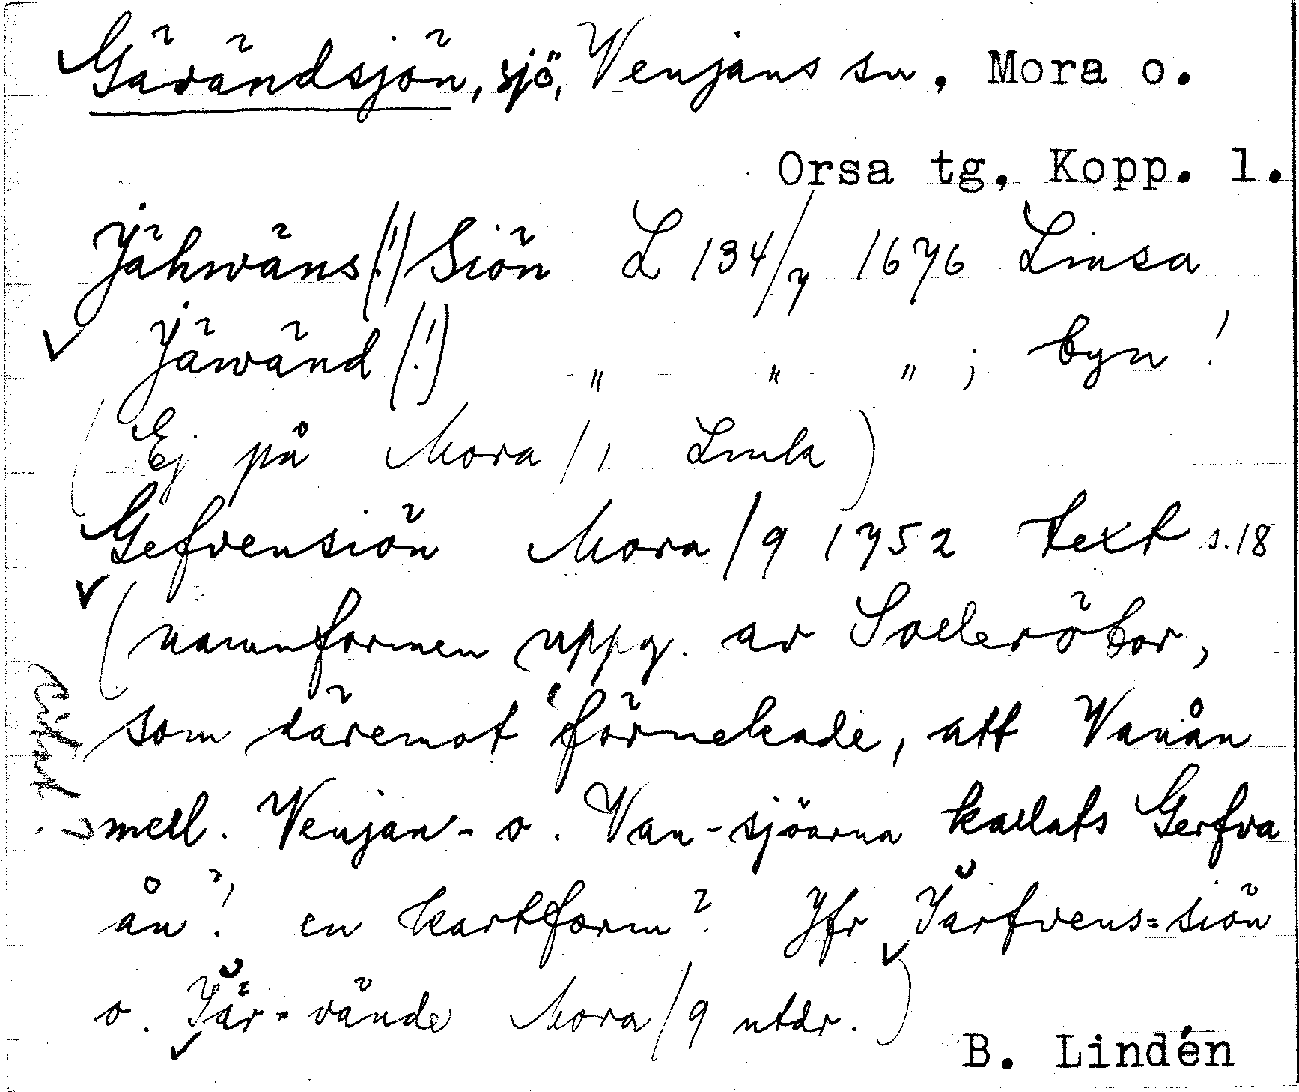 Gävändsjön, sjö, Venjans sn, Mora o.
Orsa tg, Kopp. l.
Jähwäns (!) Siön L 134/7 1676 Linsa
Jäwänd (!) " " " ; byn!
(Ej på Mora/1 Limla)
Gefvensiön Mora/9 1752 text s.18
(namnformen uppg. av Solleröbor,
som däremot "förnekade, att Vanån
mell. Venjan- o. Van-sjöarna kallats Gerfva
ån"! en kartform? Jfr Järfvens=siön
o. Jär-vände Mora/9 utdr.)
B. Lindén